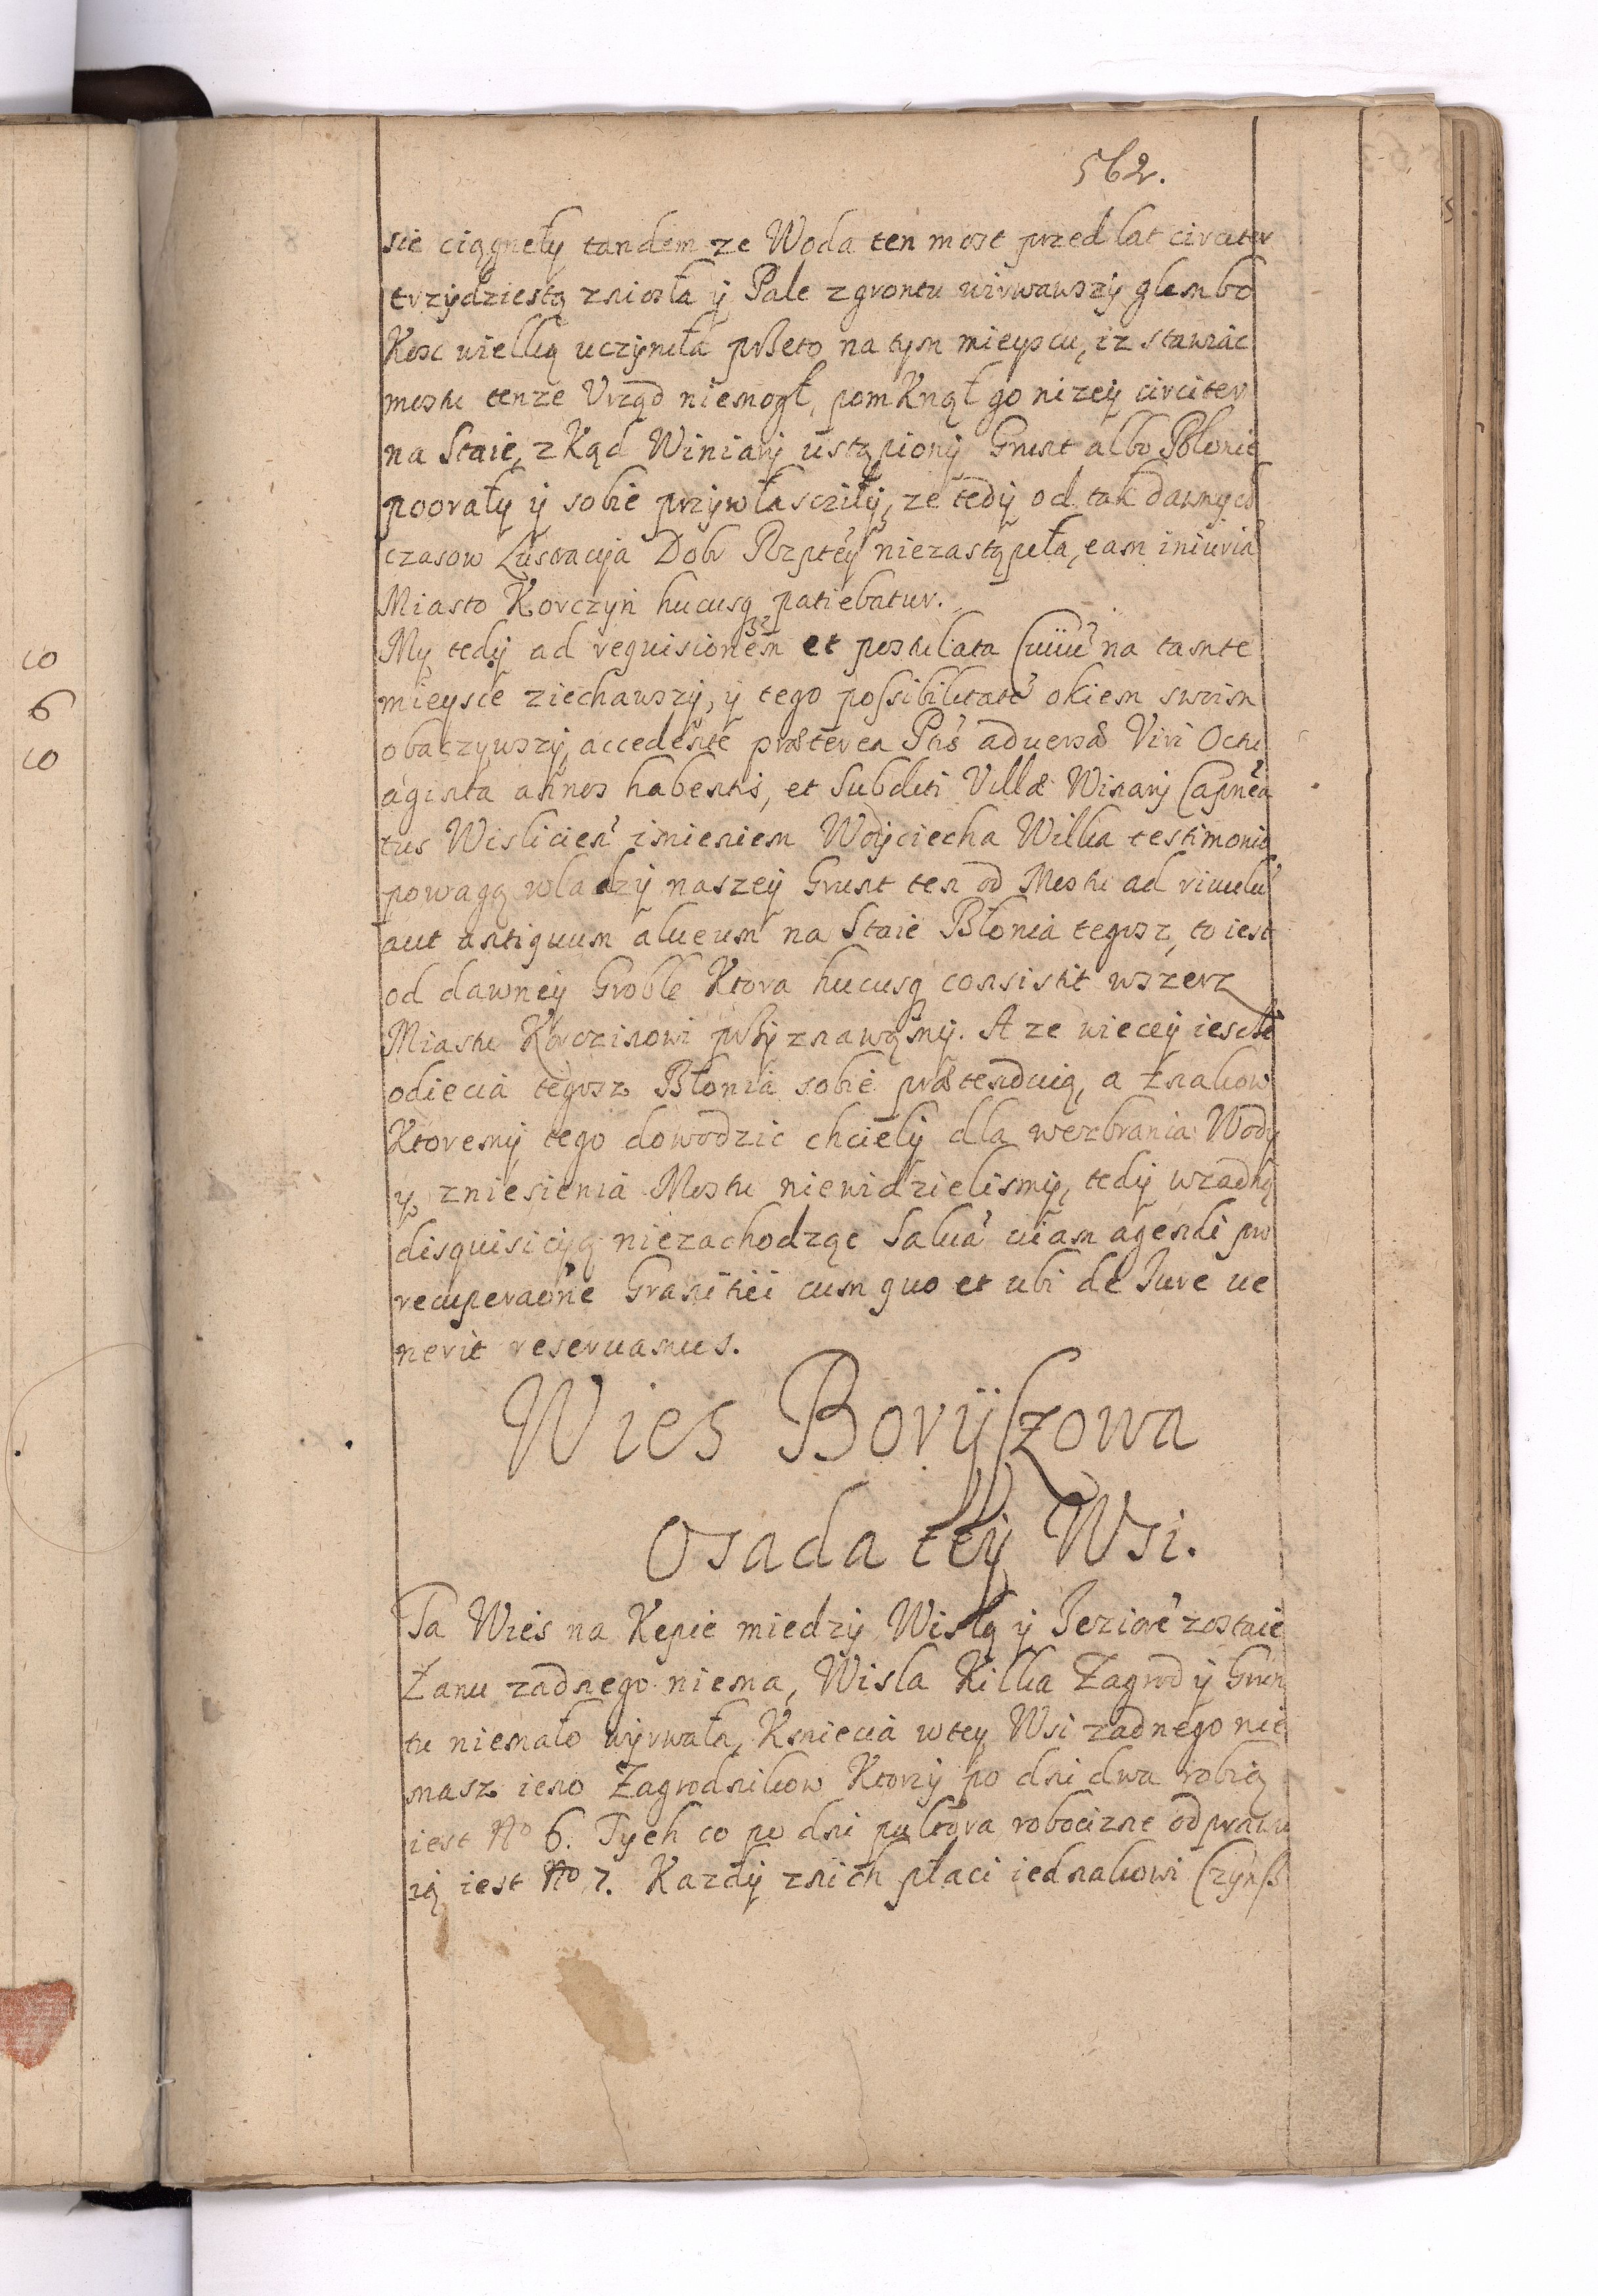 562.
sie ciągneły tandem ze Woda ten most przed lat circiter
trzydziestą zniosła ÿ Pale z grontu wirwawszÿ glembo
Kosc wielką uczyniła przeto na tym mieyscu, iz stawiac
mostu tenze Vrząd niemogł, pomKnął go nizeÿ circiter
na Staie, zKąd Winiarÿ ustąpionÿ Grunt albo Błonie
poorałÿ ÿ sobie przÿwłasciłÿ, ze tedÿ od tak dawnÿch
czasow Lustracÿa Dobr Rzptеÿ niezastąpiła, eam iniuria
Miasto Korczÿn hucusq patiebatur.
Mÿ tedÿ ad requisionem et postulata Ciuiu na tamte
mieysce ziechawszÿ, ÿ tego possibilitate okiem swoim
obaczÿwszÿ, accedente præterea Ptis aduersæ Viri Octu
aginta annos habentis, et Subditi Villæ Winarÿ Capnea
tus Wislicien imieniem Woÿciecha Wilka testimonio
powagą wladzÿ naszeÿ Grunt ten od Mostu ad riuulu
aut antiquum alueum na Staie Błonia tegosz, to iest
od dawneÿ Groble Ktora hucusq consistit wszerz
Miastu Korczinowi przÿznawamÿ. A ze wieceÿ iescze
odiecia tegosz Błonia sobie prætenduią, a znakow
Ktoremÿ tego dowodzic chcielÿ dla wezbrania Wodÿ
ÿ zniesienia Mostu niewidzielismÿ, tedÿ wzadną
disquisicÿą niezachodząc Salua uiam agendi pro
recuperaone Granitiei cum quo et ubi de Iure ue
nerit reseruamus.
Wies Borÿszowa
Osada teÿ Wsi.
Ta Wies na Kępie miedzÿ Wisłą ÿ Ieziore zostaie
Łanu zadnego niema, Wisla Kilka Zagrod ÿ Grun
tu niemało wÿrwała, Kmiecia w teÿ Wsi zadnego nie
masz ieno Zagrodnikow Ktorzÿ po dni dwa robią
iest No 6. Tÿch co po dni pułtora robocizne odprawu
ią iest No 7. Kazdÿ znich płaci iednakowi Czÿnsz
10
6
10